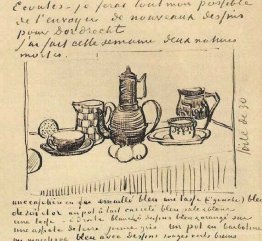 Ecoutes - je ferai tout mon possible
de t'envoyer de nouveaux dessins
pour Dordrecht
J'ai fait cette semaine deux natures
mortes.
toile de 30
une cafetière en fer émaillé bleu une tasse (à gauche) bleu
de roi et or un pot à lait carrelé bleu clair blanc
une tasse - à droite blanche dessins bleu orangé sur
une assiette de terre jaune gris un pot en barbotine
ou majolique bleu avec dessins rouges verts bruns